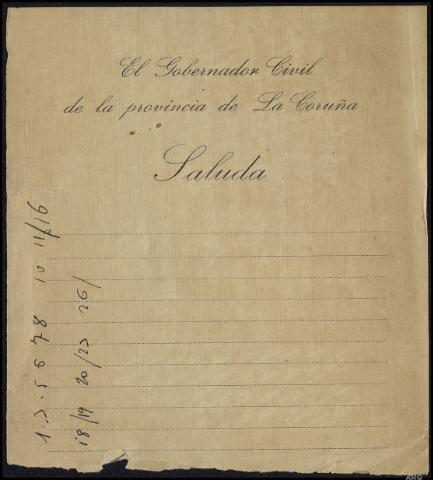 El Gobernador Civil
de la provincia de La Coruña
Saluda
1. 3. 5 6 7 8 10 11/16
18/19 20/23 26/